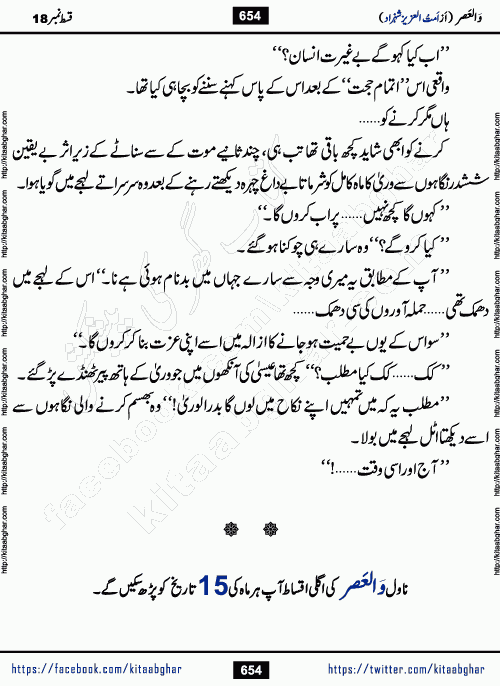 وَالعَصر (از اَمتُ العزیز شہزاد)
654
قسط نمبر 18
’’اب کیا کہو گے بے غیرت انسان؟‘‘
واقعی اس ’’اتمام حجت‘‘ کے بعد اس کے پاس کہنے سننے کو بچا ہی کیا تھا۔
ہاں مگر کرنے کو......
کرنے کو ابھی شاید کچھ باقی تھا تب ہی، چند ثانیے موت کے سے سناٹے کے زیر اثر بے یقین
ششدر نگاہوں سے ورئی کا ماہ کامل کو شرماتا بے داغ چہرہ دیکھتے رہنے کے بعد وہ سرسراتے لہجے میں گویا ہوا۔
’’کہوں گا کچھ نہیں...... پر اب کروں گا۔‘‘
’’کیا کرو گے؟‘‘ وہ سارے ہی چوکنا ہو گئے۔
’’آپ کے مطابق یہ میری وجہ سے سارے جہاں میں بدنام ہوئی ہے نا۔‘‘ اس کے لہجے میں
دھمک تھی...... حملہ آوروں کی سی دھمک......
’’سو اس کے یوں بے حمیت ہو جانے کا ازالہ میں اسے اپنی عزت بنا کر کروں گا۔‘‘
’’کک...... کک کیا مطلب؟‘‘ کچھ تھا عیسیٰ کی آنکھوں میں جو ورئی کے ہاتھ پیر ٹھنڈے پڑ گئے۔
’’مطلب یہ کہ میں تمہیں اپنے نکاح میں لوں گا بدر الوریٰ!‘‘ وہ بھسم کرنے والی نگاہوں سے
اسے دیکھتا اٹل لہجے میں بولا۔
’’آج اور اسی وقت......!‘‘
ناول وَالعَصر کی اگلی اقساط آپ ہر ماہ کی 15 تاریخ کو پڑھ سکیں گے۔
https://facebook.com/kitaabghar
654
https://twitter.com/kitaabghar
http://kitaabghar.com